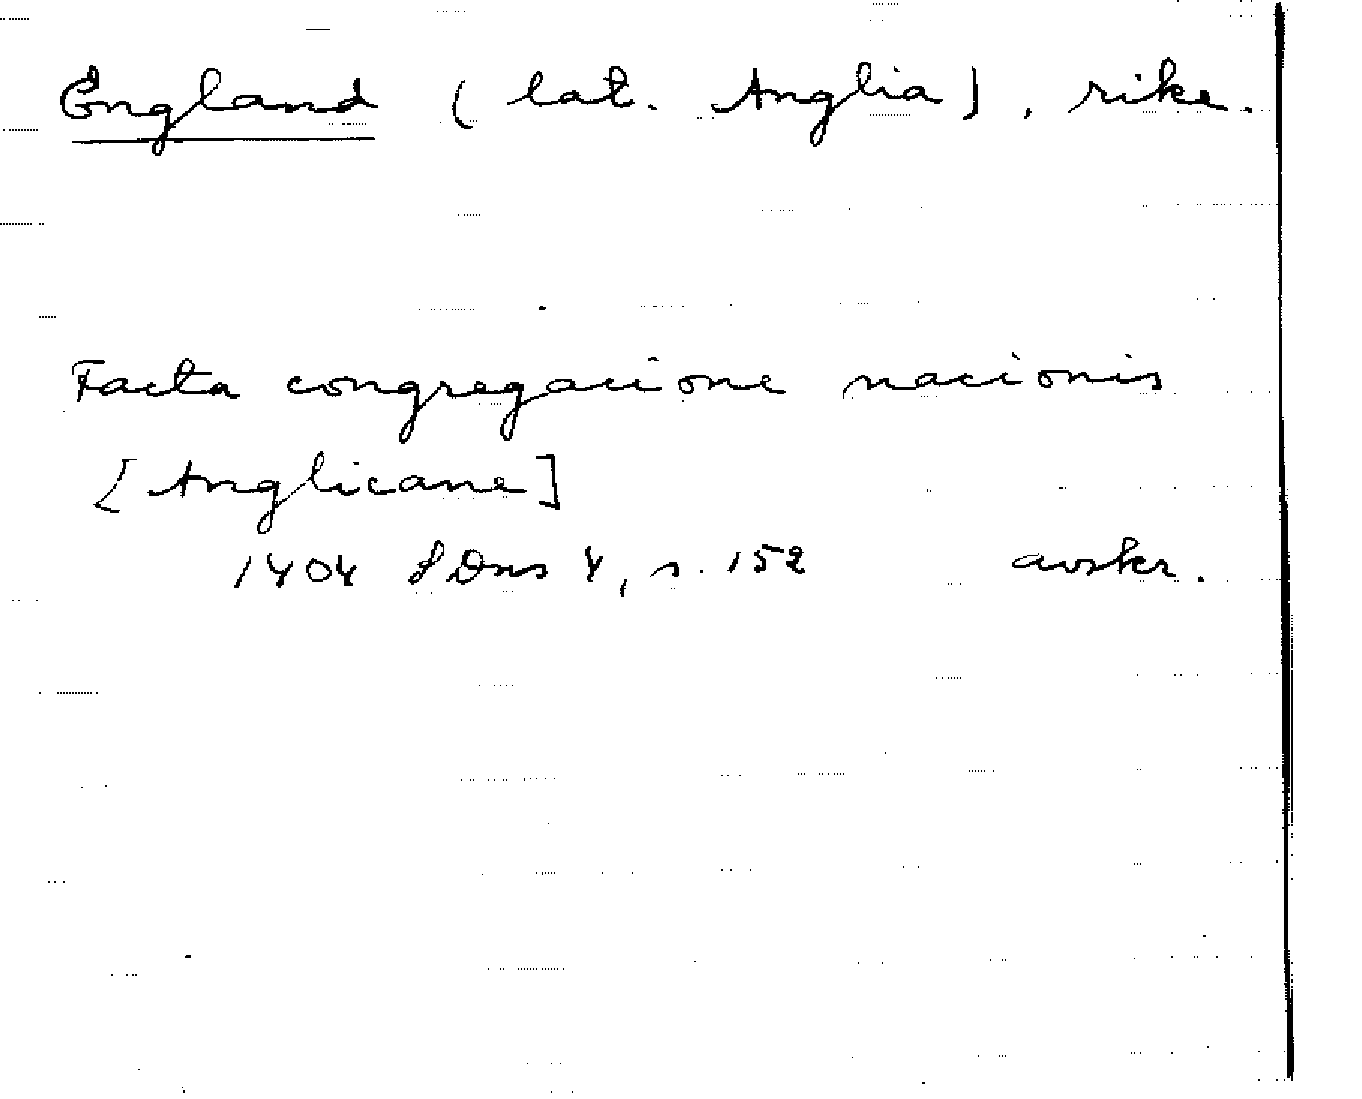 England (lat. Anglia), rike.
Facta congregacione nacionis
[Anglicane]
1404 SDns 4, s. 152 avskr.